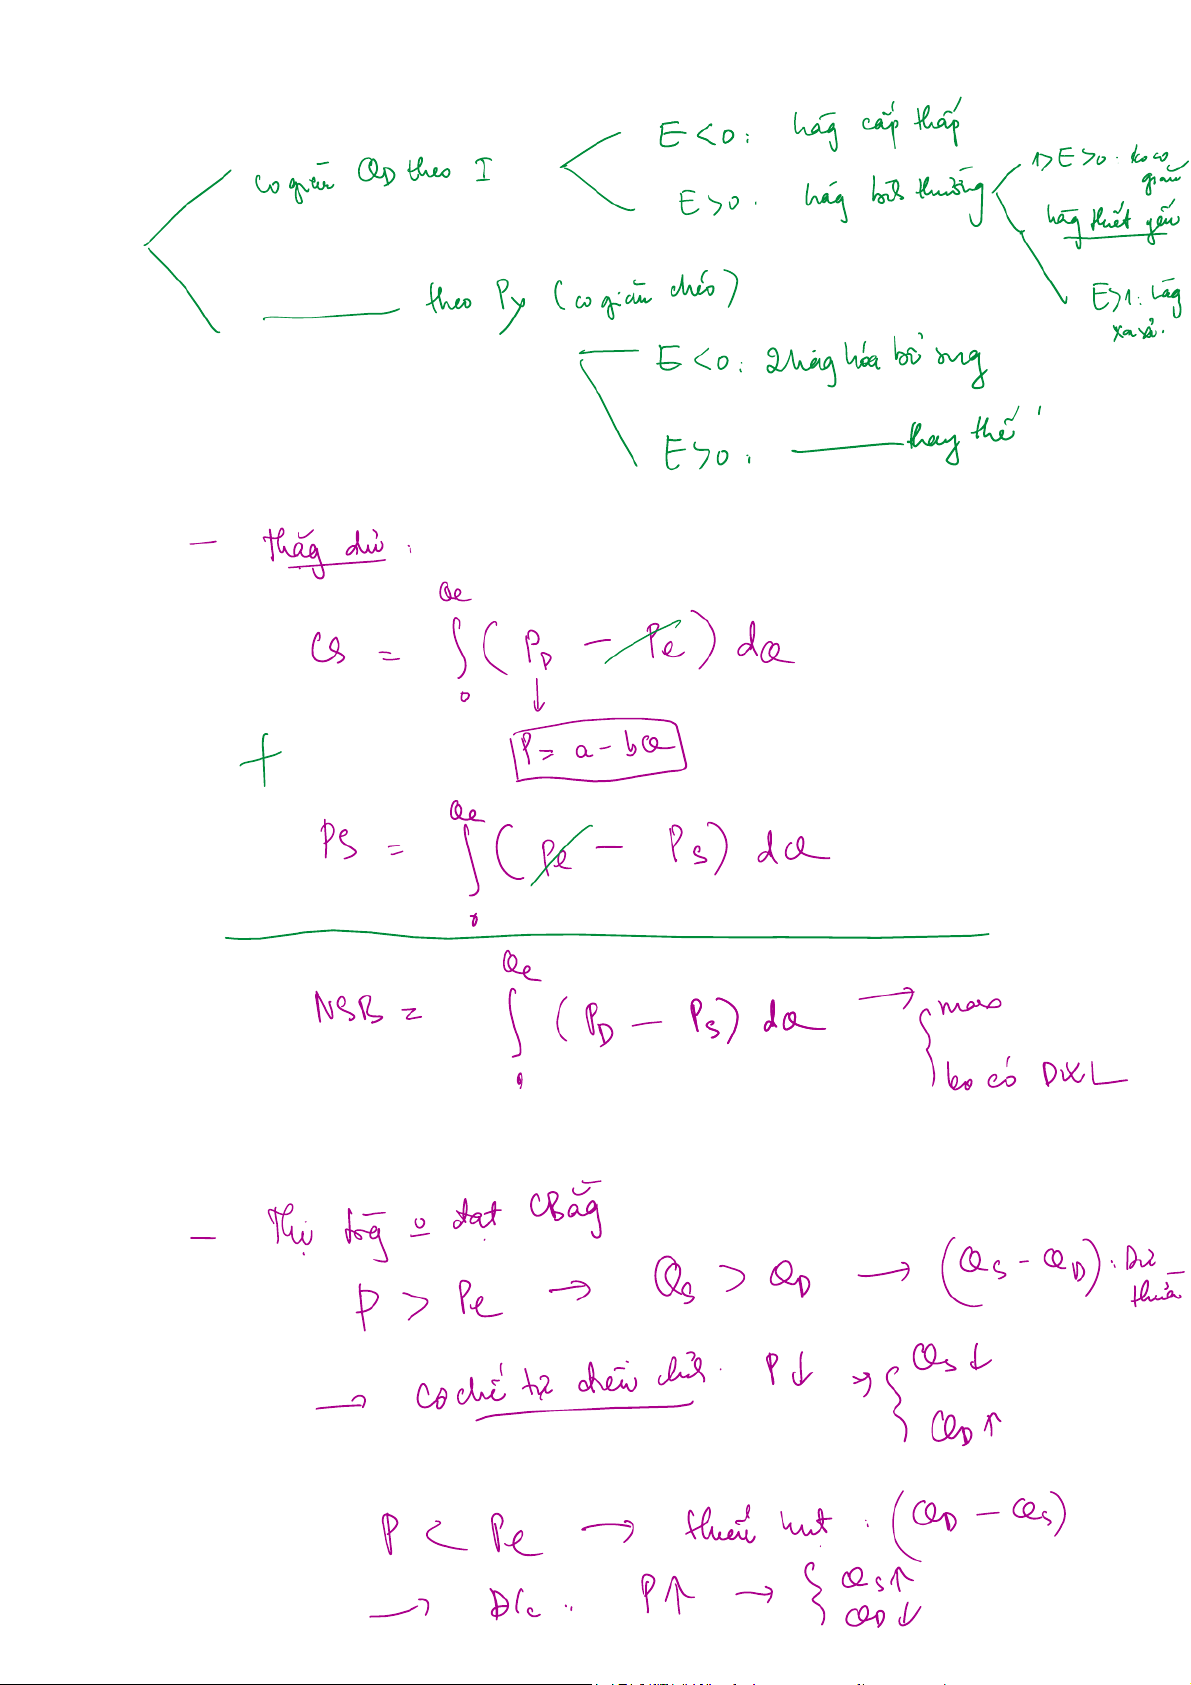 E < 0 : hàg cấp thấp
co giãn QD theo I
E > 0 : hàg bth thường
1 > E > 0 : ko co giãn
hàg thiết yếu
E > 1 : hàg xa xỉ.
theo Py (co giãn chéo)
E < 0 : 2 hàg hóa bổ sung
E > 0 : thay thế
- thặg dư :
CS = ∫₀^Qe (PD - Pe) dQ
↓
P = a - bQ
+
PS = ∫₀^Qe (Pe - PS) dQ
NSB = ∫₀^Qe (PD - PS) dQ → { max
ko có DWL
- Thị trg o đạt CBằg
P > Pe → QS > QD → (QS - QD) : Dư thừa
→ Cơ chế tự điều chỉh : P↓ → { QS ↓
QD ↑
P < Pe → thiếu hụt : (QD - QS)
→ Đ/c : P↑ → { QS ↑
QD ↓